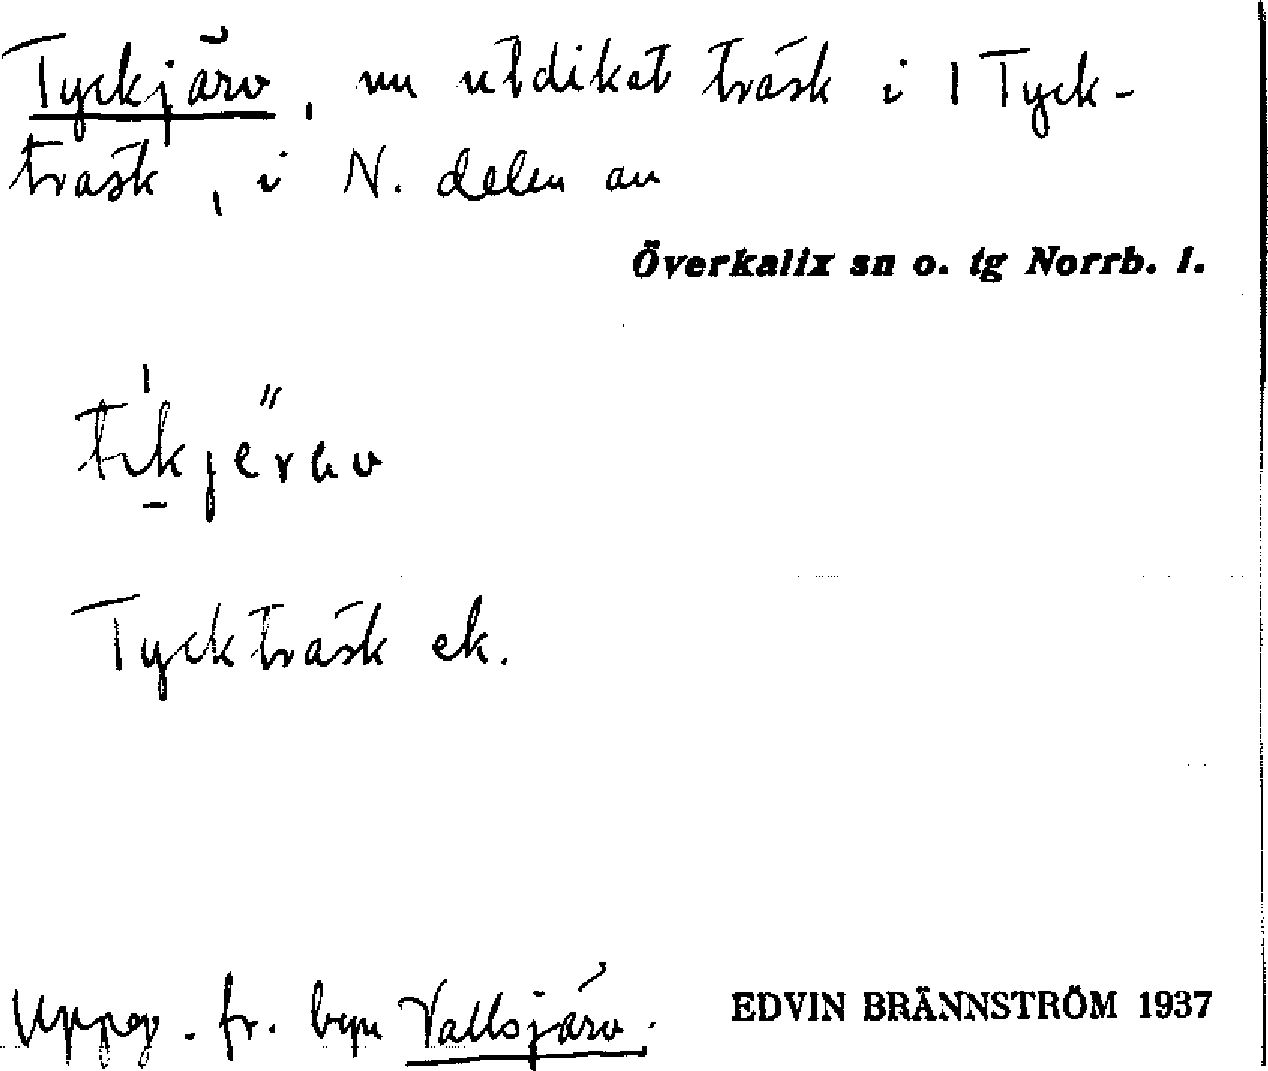 Tyckjärv, nu utdikat träsk i 1 Tyck-
träsk, i N. delen av
Överkalix sn o. tg Norrb. l.
Tyckträsk ek.
Uppg. fr. byn Vallsjärv.
EDVIN BRÄNNSTRÖM 1937